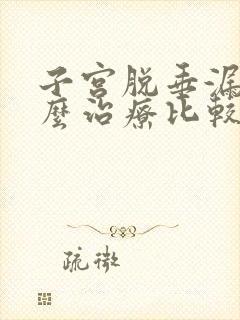 子宫脱垂漏
麼治療比較
疏微